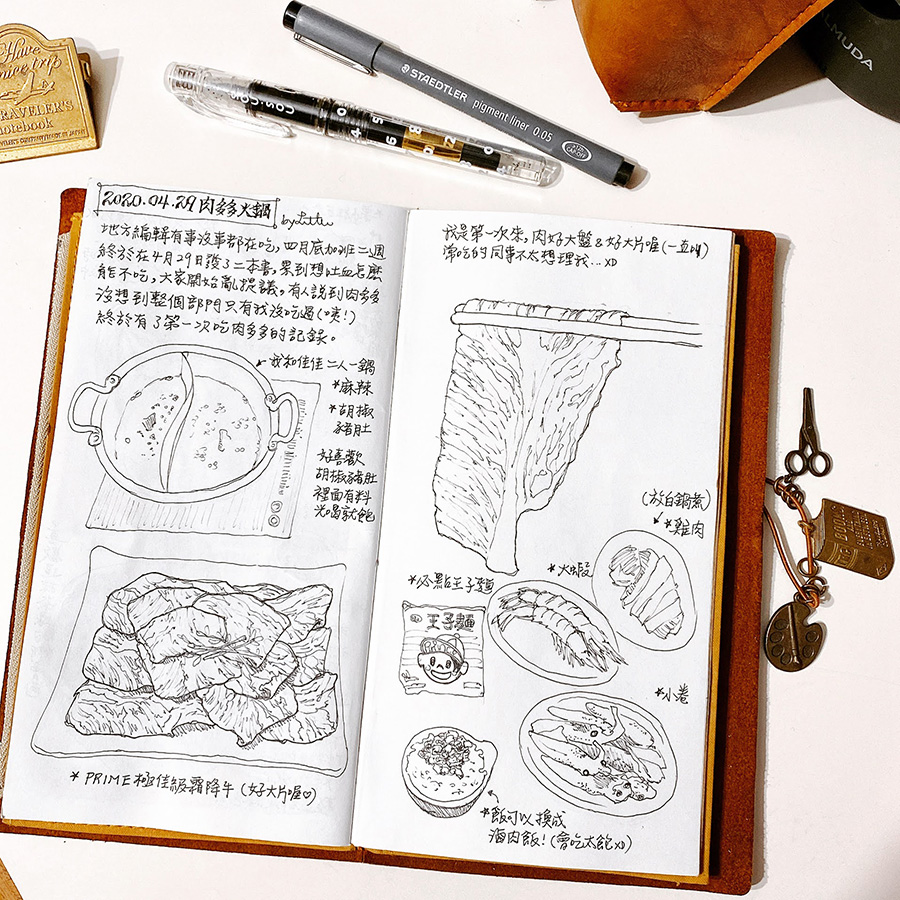 Have
a nice trip
TRAVELER'S
notebook
STAEDTLER pigment liner 0.05
CAP-OFF
BALMUDA
2020.04.29 肉多多火鍋
地方編輯有事沒事都在吃，四月底加班二週
終於在4月29日發了二本書，累到想吐血怎麼
能不吃，大家開始亂提議，有人說到肉多多
沒想到整個部門只有我沒吃過（咦！）
終於有了第一次吃肉多多的記錄。
我和佳佳二人一鍋
*麻辣
*胡椒
豬肚
好喜歡
胡椒豬肚
裡面有料
光喝就飽
* PRIME 極佳級霜降牛（好大片喔♡）
我是第一次來，肉好大盤&好大片喔（一直叫）
常吃的同事不太想理我...XD
（放白鍋煮）
*雞肉
*大蝦
*必點王子麵
王子麵
*小卷
*飯可以換成
滷肉飯！（會吃太飽XD）
BOOKS